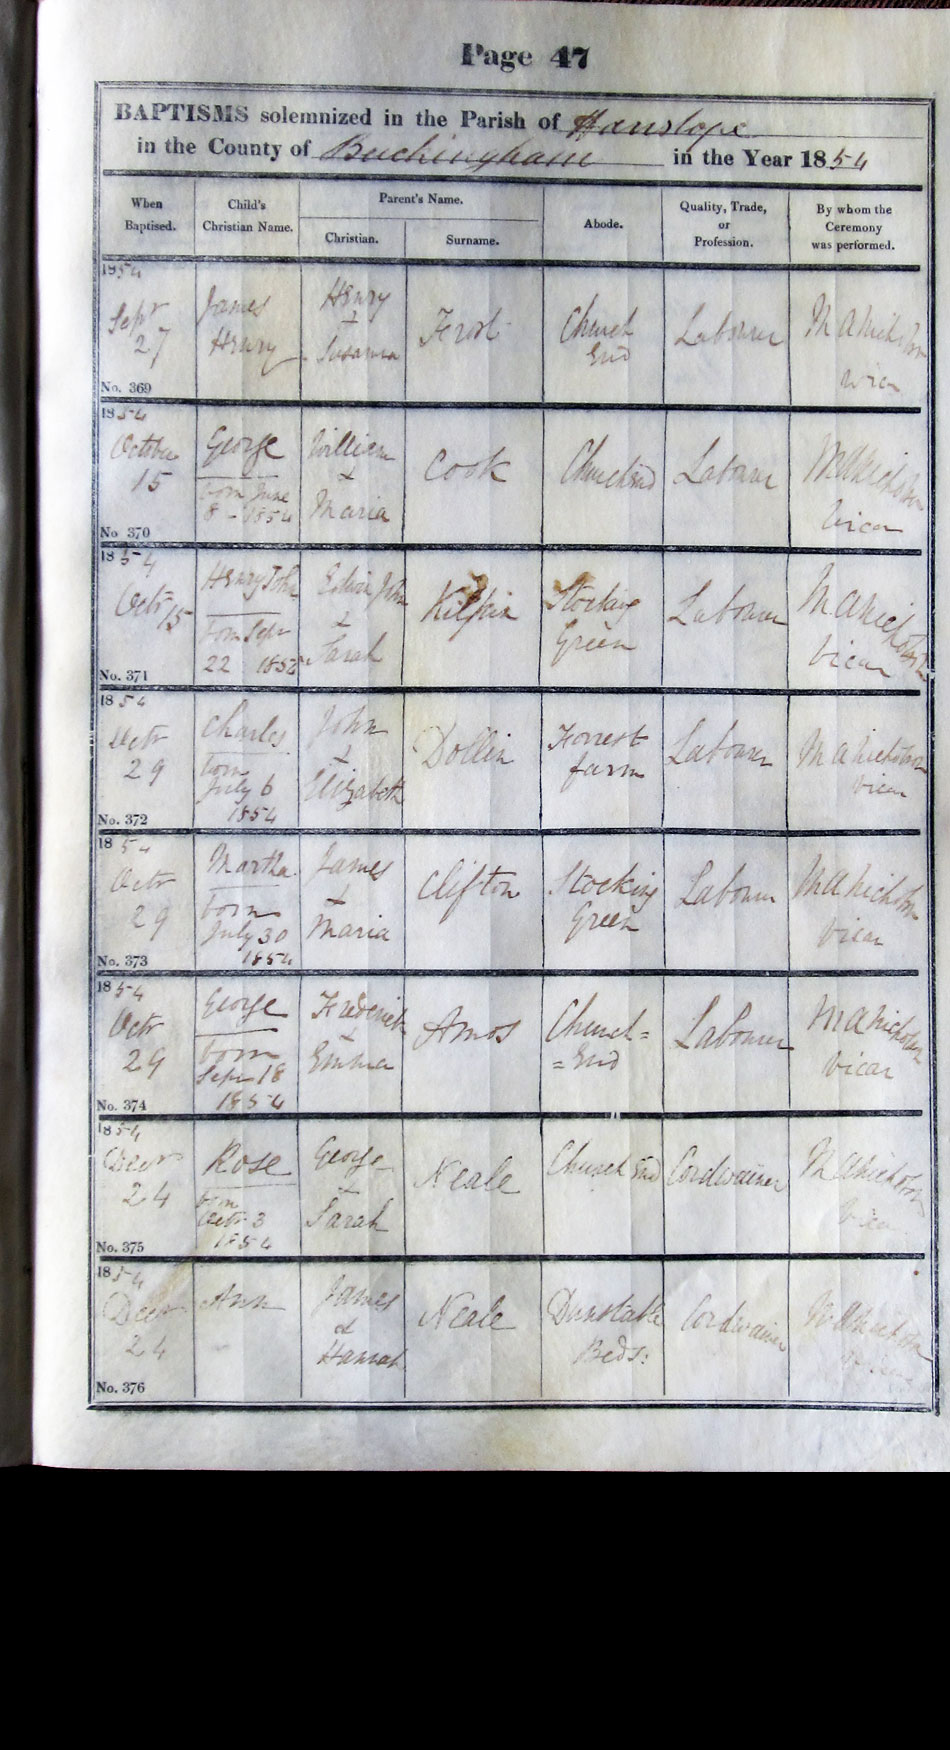 Page 47
BAPTISMS solemnized in the Parish of Hanslope
in the County of Buckingham in the Year 1854
When Baptised.
Child's Christian Name.
Parent's Name.
Christian.
Surname.
Abode.
Quality, Trade, or Profession.
By whom the Ceremony was performed.
1854
Sept 27
No. 369
James
Henry
Henry
+
Susanna
Frost
Church
End
Labourer
M A Nicholson
Vicar
1854
October
15
No 370
George
born June
8 - 1854
William
+
Maria
Cook
Church End
Labourer
M A Nicholson
Vicar
1854
Octr 15
No. 371
Henry John
born Sept
22
Edwin John
+
Sarah
Kilpin
Stocking
Green
Labourer
M A Nicholson
Vicar
1854
Octr
29
No. 372
Charles
born
July 6
1854
John
+
Elizabeth
Dollin
Forrest
farm
Labourer
M A Nicholson
Vicar
1854
Octr
29
No. 373
Martha
born
July 30
1854
James
+
Maria
Clifton
Stocking
Green
Labourer
M A Nicholson
Vicar
1854
Octr
29
No. 374
George
born
Sept 18
1854
Frederick
+
Emma
Amos
Church=
=End
Labourer
M A Nicholson
Vicar
1854
Decr
24
No. 375
Rose
born
Octr 3
1854
George
+
Sarah
Neale
Church End
Cordwainer
M A Nicholson
Vicar
1854
Decr
24
No. 376
Ann
James
&
Hannah
Neale
Dunstable
Beds:
Cordwainer
M A Nicholson